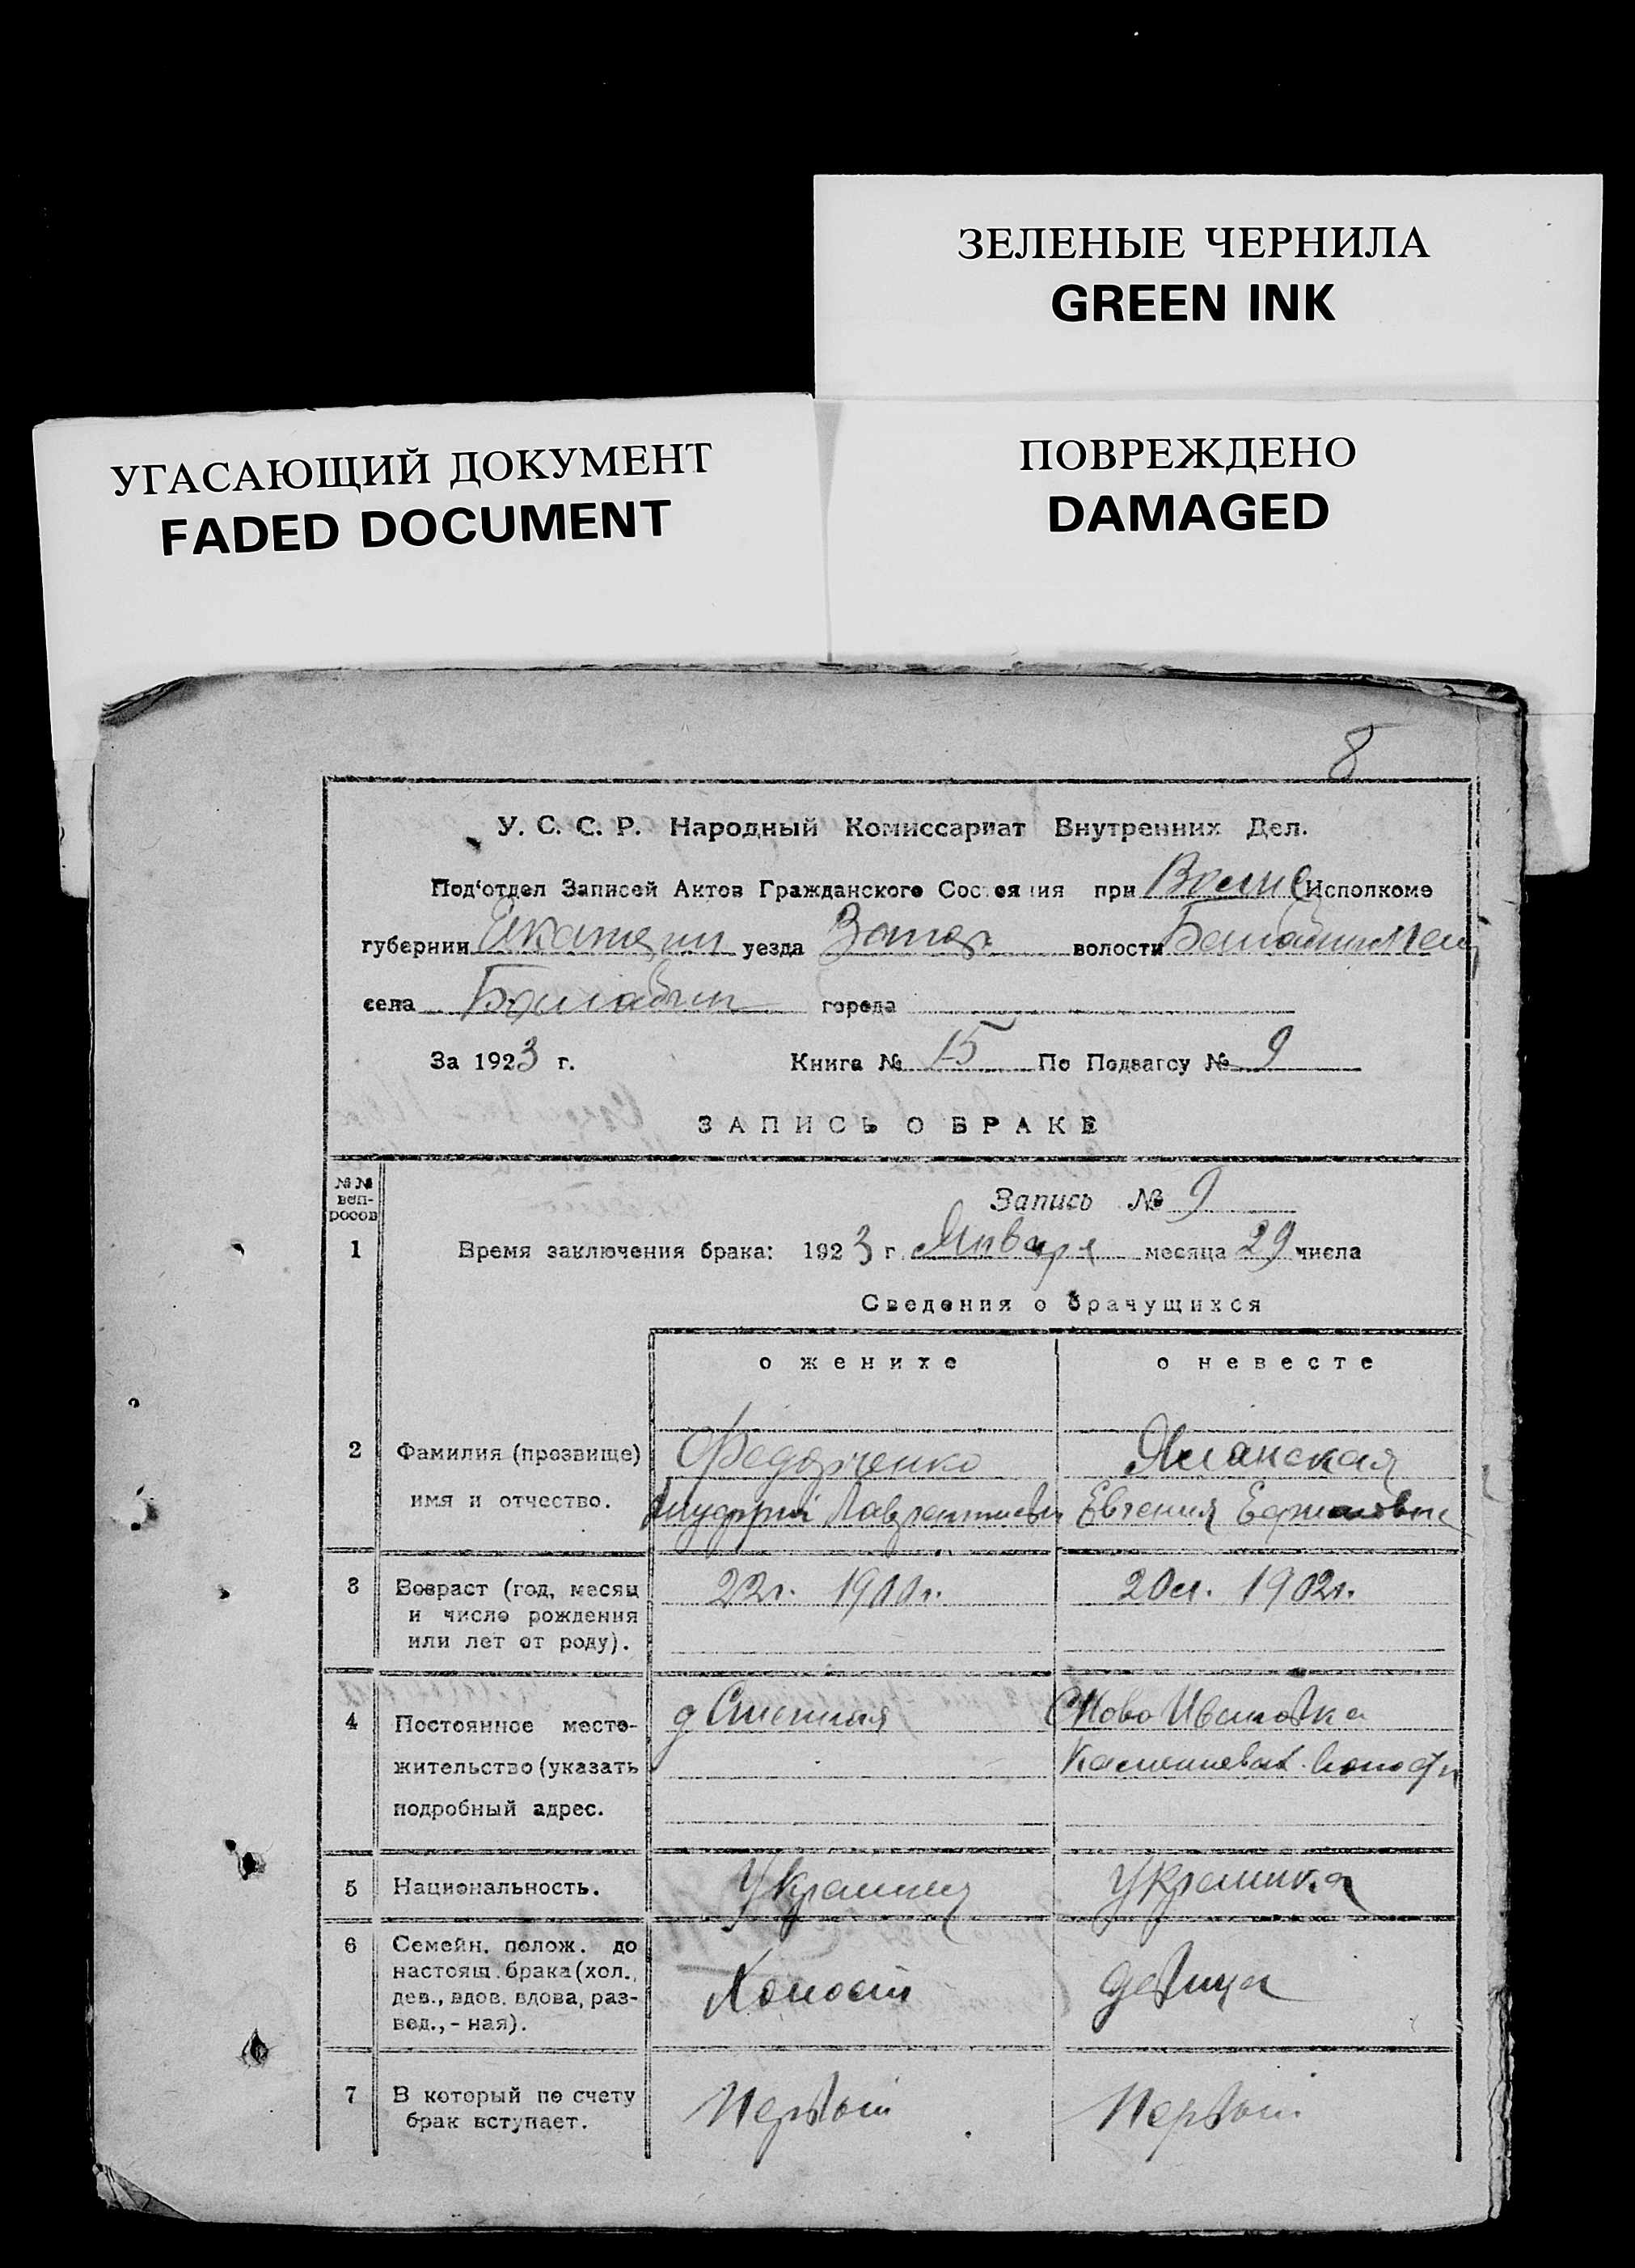 ЗЕЛЕНЫЕ ЧЕРНИЛА
GREEN INK
УГАСАЮЩИЙ ДОКУМЕНТ
FADED DOCUMENT
ПОВРЕЖДЕНО
DAMAGED
8
У. С. С. Р. Народный Комиссариат Внутренних Дел.
Под'отдел Записей Актов Гражданского Состояния при Исполкоме
губернии Екатерин уезда Запор. волости
села Балабин города
За 1923 г. Книга № 15 По Подзагсу № 9
ЗАПИСЬ О БРАКЕ
№№ воп-
росов
Запись № 9
1 Время заключения брака: 1923 г. Января месяца 29 числа
Сведения о брачущихся
о женихе о невесте
2 Фамилия (прозвище) Федорченко
имя и отчество. Лаврентиевич Евгения
3 Возраст (год, месяц 22г. 1900г. 20л. 1902г.
и число рождения
или лет от роду).
4 Постоянное место- д Степная С Ново Ивановка
жительство (указать
подробный адрес.
5 Национальность. Украинец Украинка
6 Семейн. полож. до
настоящ. брака (хол., Холост девица
дев., вдов. вдова, раз-
вед., - ная).
7 В который по счету Первый Первый
брак вступает.